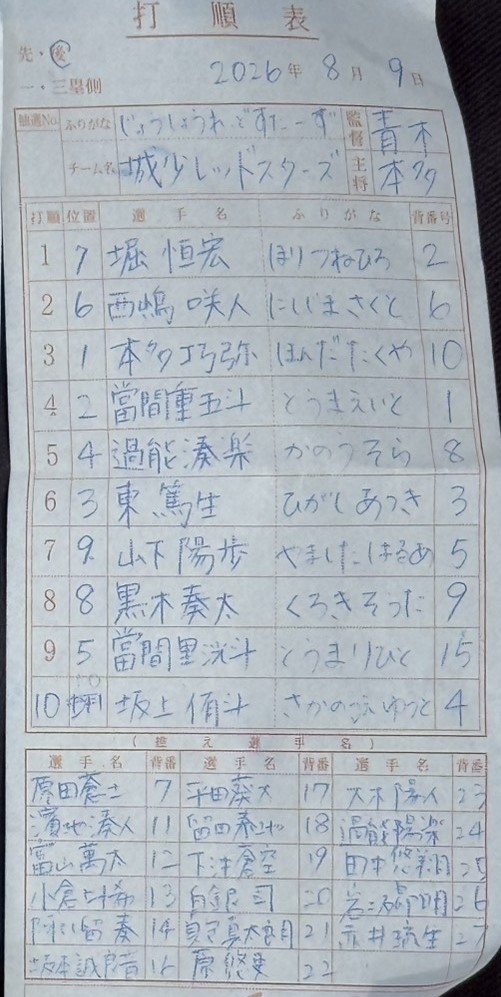 打順表
先・後
2026年 8月 9日
一・三塁側
抽選No. ふりがな じょうしょうれっどすたーず 監督 青木
チーム名 城少レッドスターズ 主将 本多
打順 位置 選手名 ふりがな 背番号
1 7 堀 恒宏 ほりつねひろ 2
2 6 西嶋咲人 にしじまさくと 6
3 1 本多巧弥 ほんだたくや 10
4 2 當間 とうまえいと 1
5 4 過能湊楽 かのうそら 8
6 3 東 篤生 ひがしあつき 3
7 9 山下陽歩 やましたはるあ 5
8 8 黒木奏太 くろきそうた 9
9 5 當間 とうまりひと 15
10 坂上侑斗 さかのうえゆうと 4
(控え選手名)
選手名 背番 選手名 背番 選手名 背番
原田蒼士 7 平田葵太 17 大木陽人 23
濱地湊人 11 留田 18 過能陽楽 24
富山萬太 12 下津蒼空 19 田中悠翔 25
小倉 13 白銀 司 20 岩 26
14 真太朗 21 赤井琉生 27
坂本誠 16 原 悠 22